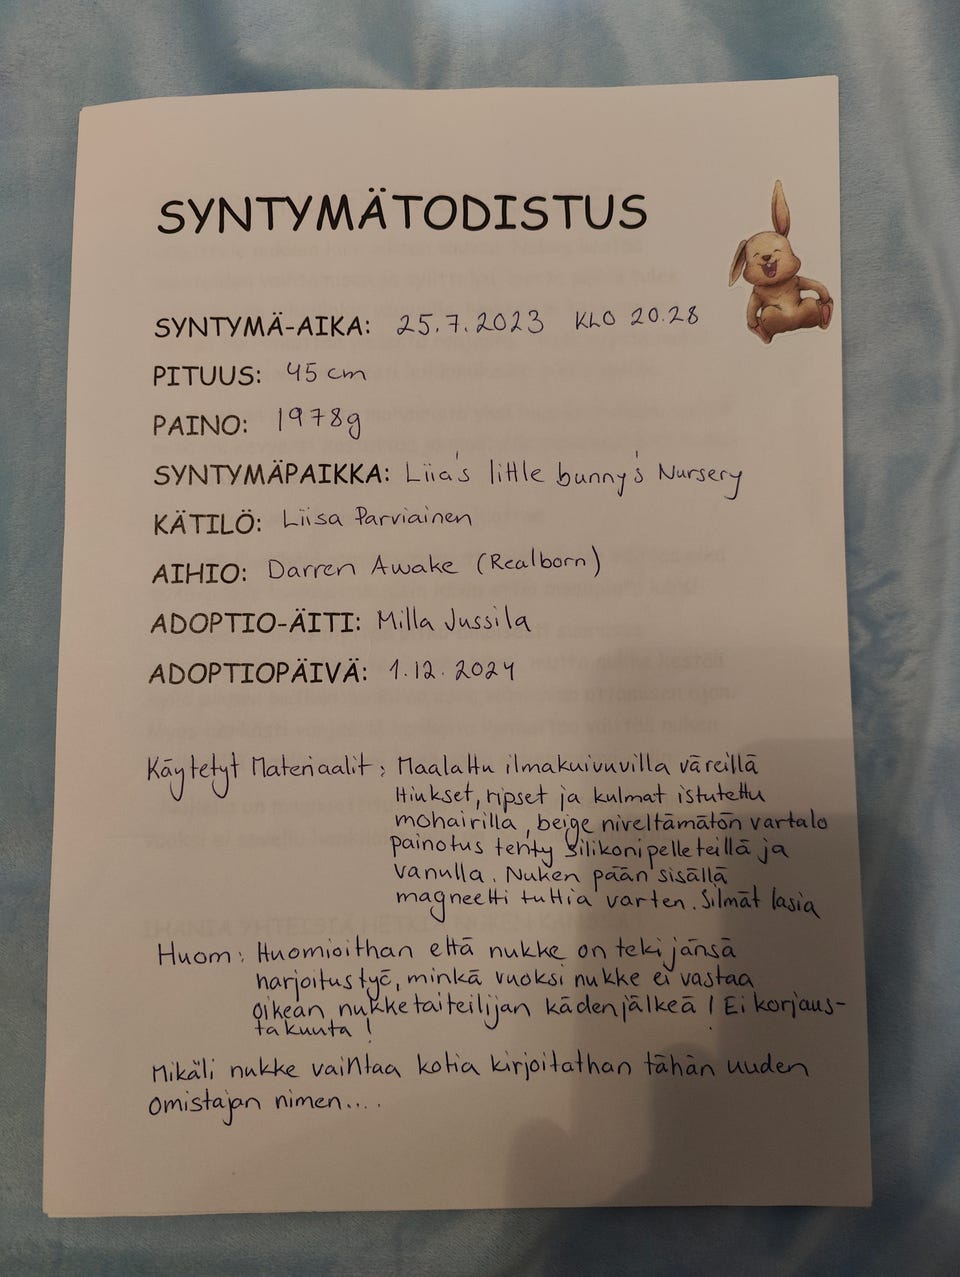 SYNTYMÄTODISTUS
SYNTYMÄ-AIKA: 25.7.2023 KLO 20.28
PITUUS: 45 cm
PAINO: 1978g
SYNTYMÄPAIKKA: Liia's little bunny's Nursery
KÄTILÖ: Liisa Parviainen
AIHIO: Darren Awake (Realborn)
ADOPTIO-ÄITI: Milla Jussila
ADOPTIOPÄIVÄ: 1.12.2024
Käytetyt Materiaalit: Maalattu ilmakuivuvilla väreillä
Hiukset, ripset ja kulmat istutettu
mohairilla, beige niveltämätön vartalo
painotus tehty silikonipelleteillä ja
vanulla. Nuken pään sisällä
magneetti tuttia varten. Silmät lasia
Huom: Huomioithan että nukke on tekijänsä
harjoitustyö, minkä vuoksi nukke ei vastaa
oikean nukketaiteilijan kädenjälkeä! Ei korjaus-
takuuta!
Mikäli nukke vaihtaa kotia kirjoitathan tähän uuden
omistajan nimen....